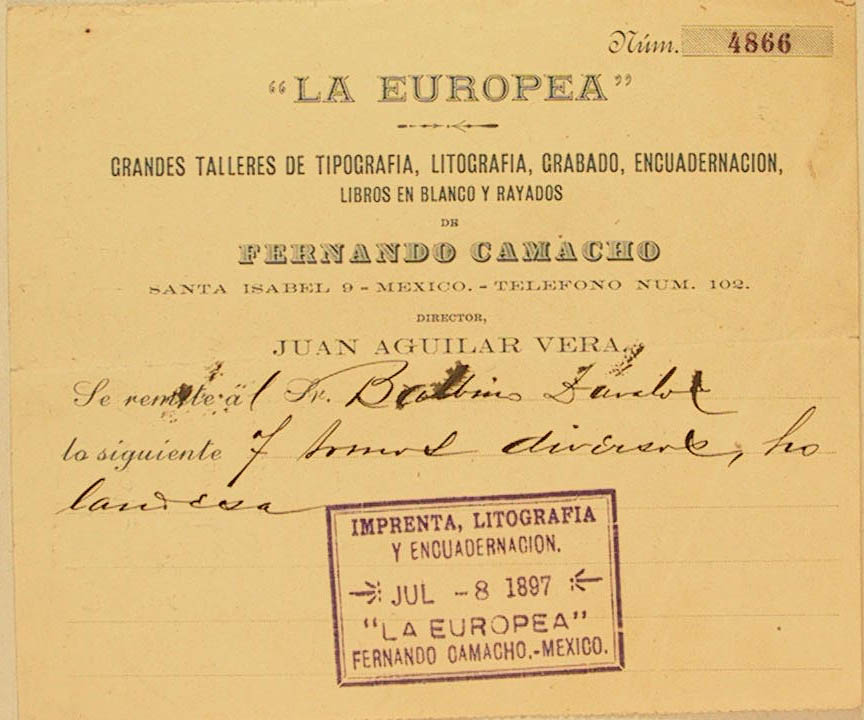 Núm. 4866
"LA EUROPEA"
GRANDES TALLERES DE TIPOGRAFIA, LITOGRAFIA, GRABADO, ENCUADERNACION,
LIBROS EN BLANCO Y RAYADOS
DE
FERNANDO CAMACHO
SANTA ISABEL 9 - MEXICO. - TELEFONO NUM. 102.
DIRECTOR,
JUAN AGUILAR VERA.
Se remite al Sr. Balbino Dávalos
lo siguiente 7 tomos diversos, ho
landesa
IMPRENTA, LITOGRAFIA
Y ENCUADERNACION.
JUL - 8 1897
"LA EUROPEA"
FERNANDO CAMACHO.-MEXICO.